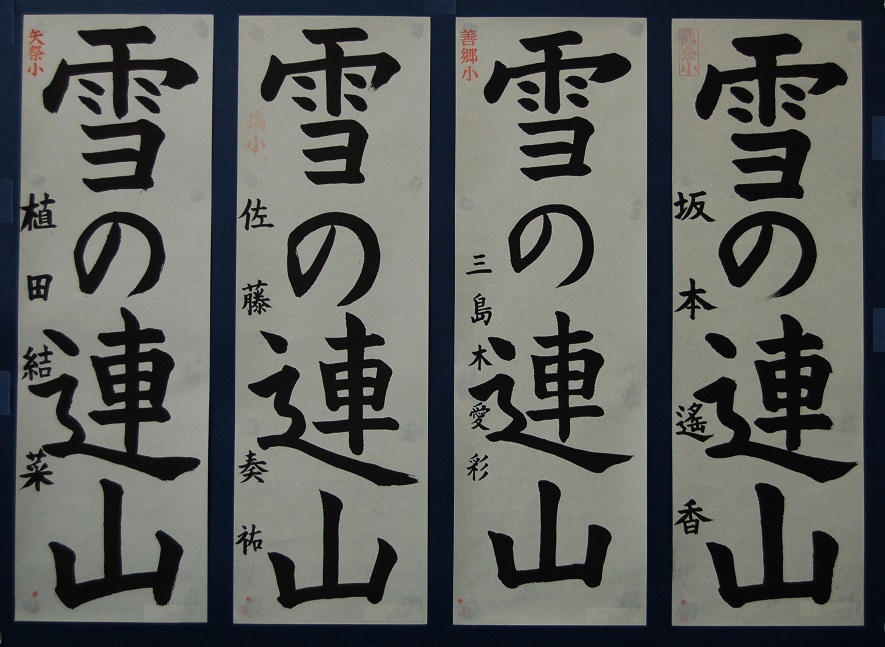 雪の連山
矢祭小
植田結菜
雪の連山
小
佐藤奏祐
雪の連山
善郷小
三島木愛彩
雪の連山
小
坂本遙香